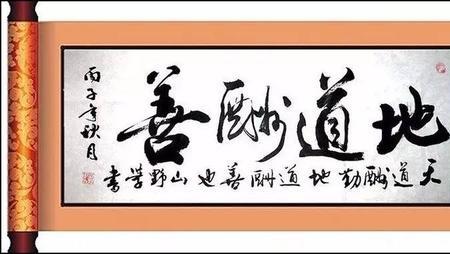 地道酬善
天道酬勤地道酬善也山野学書
丙子年秋月